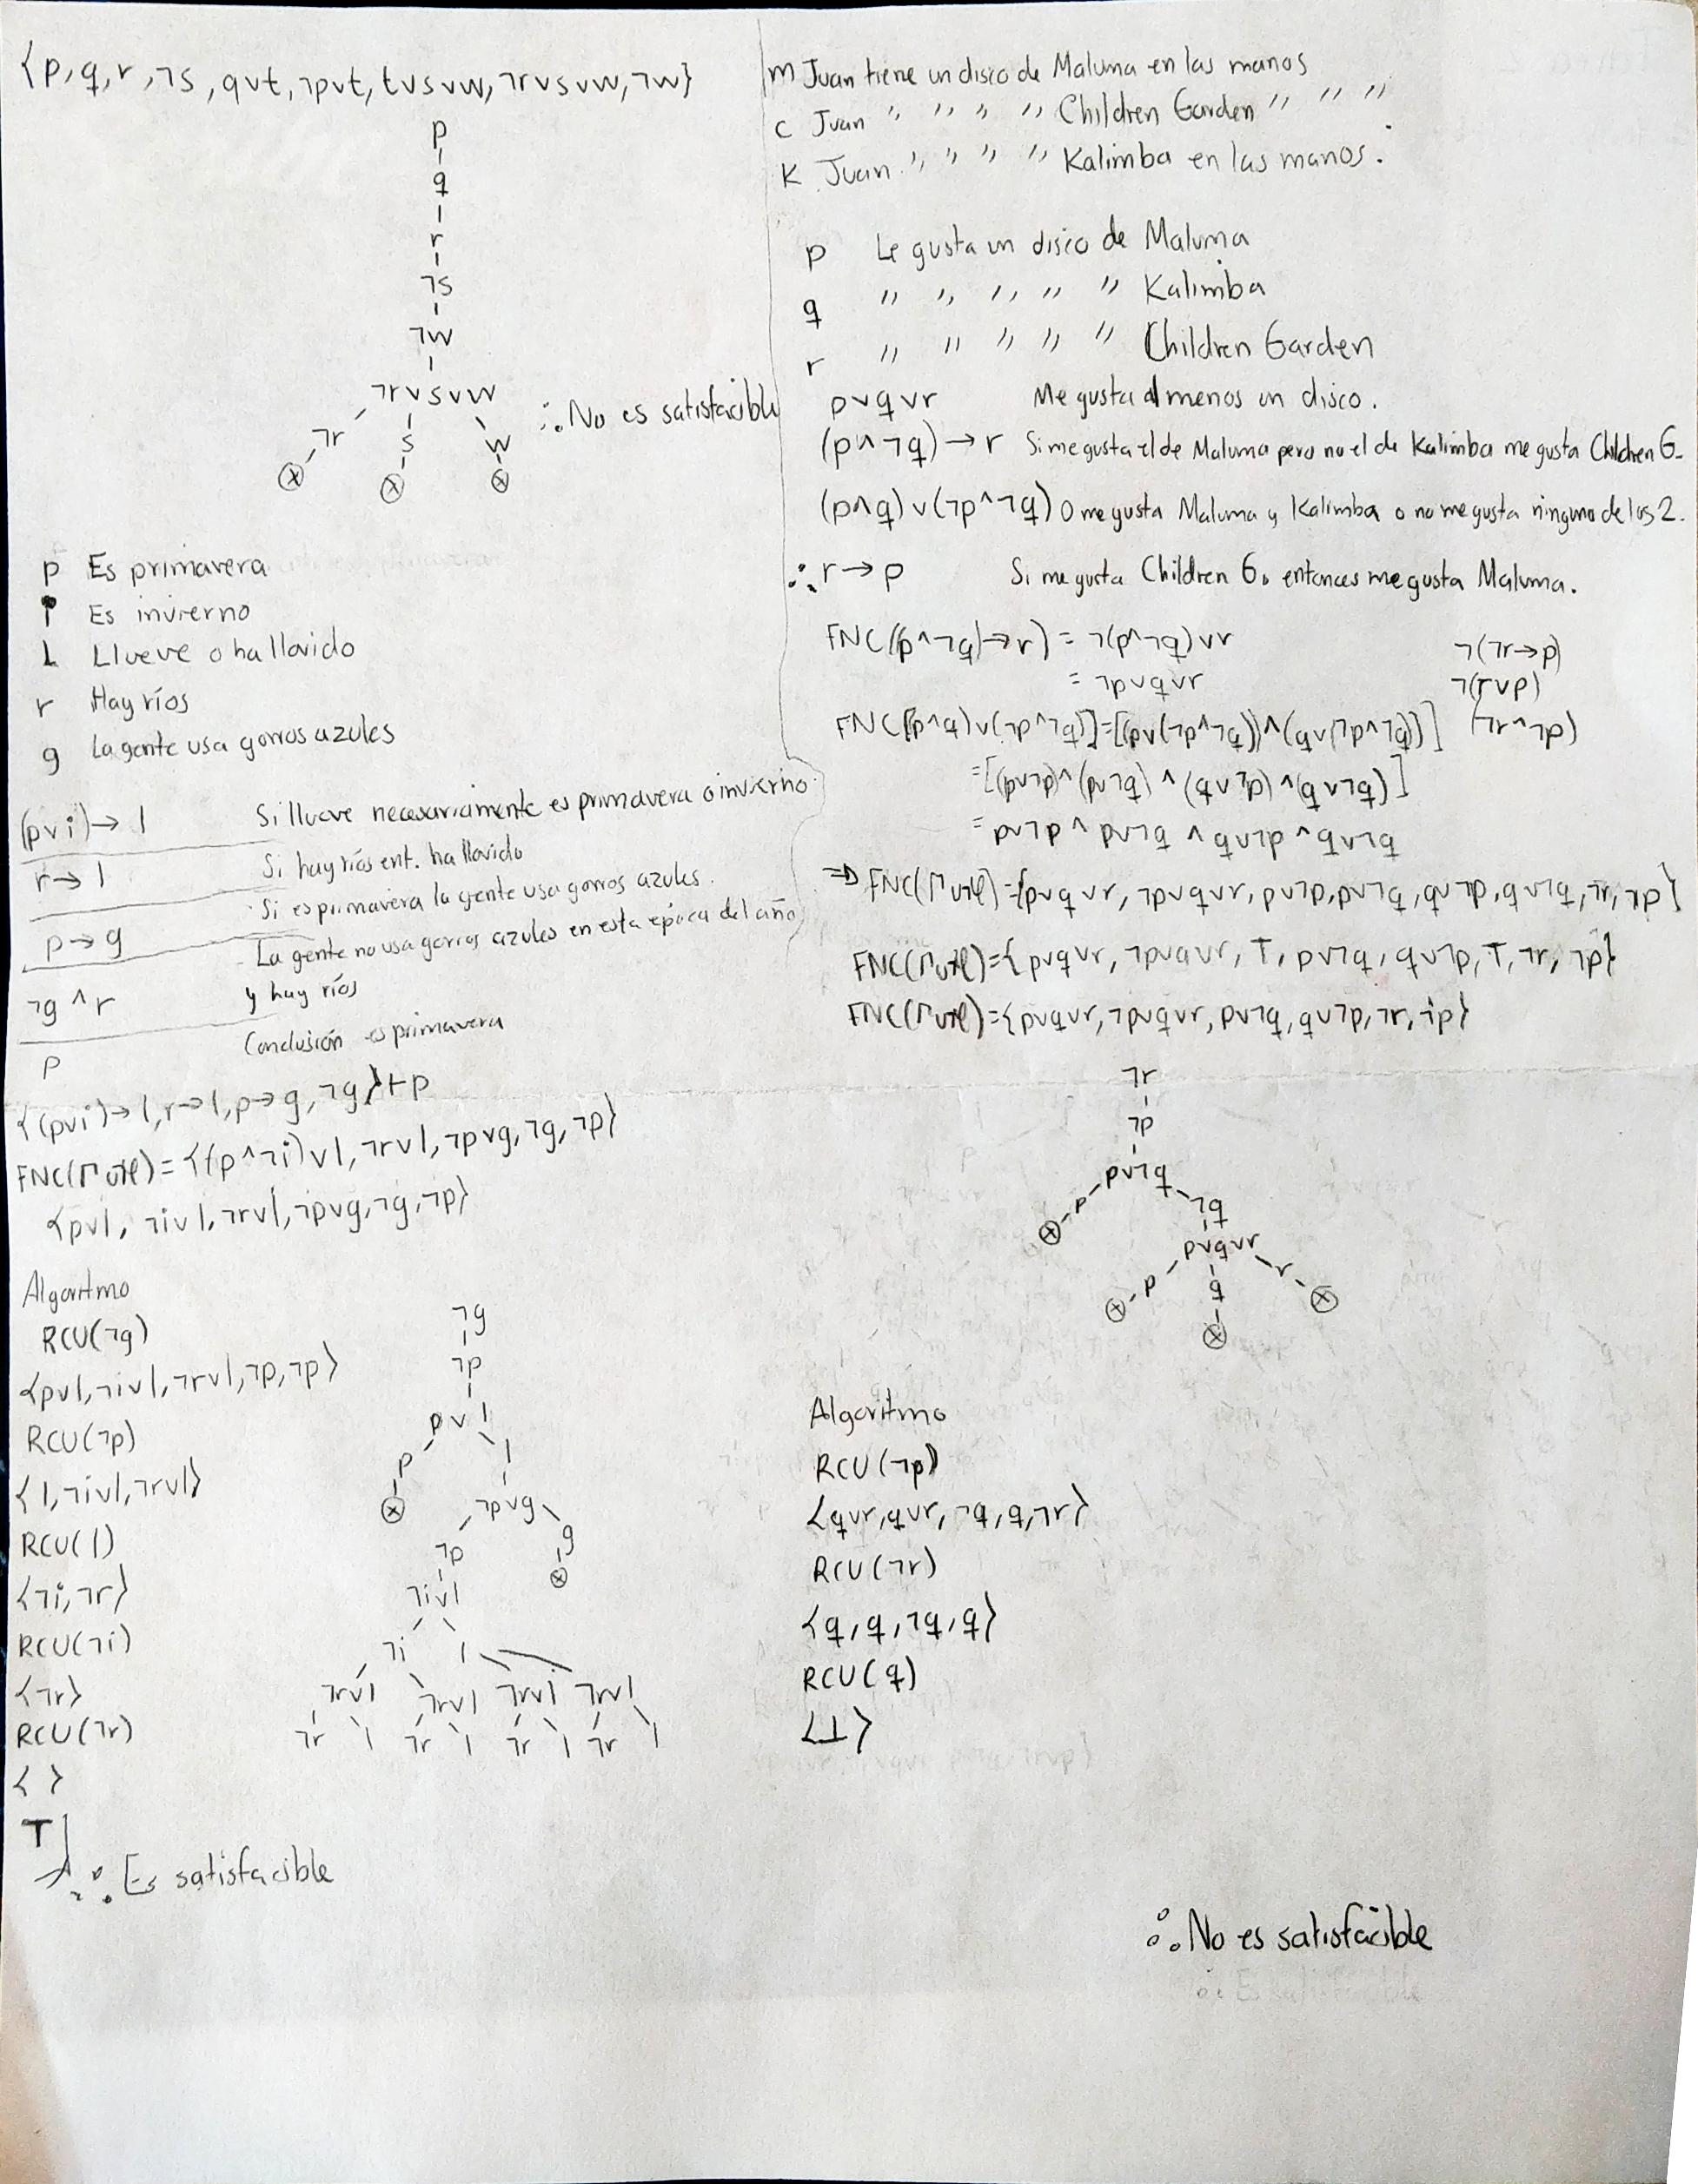 {p, q, r, ¬s, q∨t, ¬p∨t, t∨s∨w, ¬r∨s∨w, ¬w}
p
q
r
¬s
¬w
¬r∨s∨w
¬r s w
⊗ ⊗ ⊗
∴ No es satisfacible
p Es primavera
i Es invierno
l Llueve o ha llovido
r Hay ríos
g La gente usa gorros azules
(p∨i)→l Si llueve necesariamente es primavera o invierno
r→l Si hay ríos ent. ha llovido
p→g Si es primavera la gente usa gorros azules.
¬g∧r La gente no usa gorros azules en esta época del año
y hay ríos
p Conclusión es primavera
{(p∨i)→l, r→l, p→g, ¬g}⊢p
FNC(Γ∪¬φ)={(p∧¬i)∨l, ¬r∨l, ¬p∨g, ¬g, ¬p}
{p∨l, ¬i∨l, ¬r∨l, ¬p∨g, ¬g, ¬p}
Algoritmo
RCU(¬g)
{p∨l, ¬i∨l, ¬r∨l, ¬p, ¬p}
RCU(¬p)
{l, ¬i∨l, ¬r∨l}
RCU(l)
{¬i, ¬r}
RCU(¬i)
{¬r}
RCU(¬r)
{ }
T
∴ Es satisfacible
¬g
¬p
p∨l
p l
⊗ ¬p∨g
¬p g
¬i∨l ⊗
¬i l
¬r∨l ¬r∨l ¬r∨l ¬r∨l
¬r l ¬r l ¬r l ¬r l
m Juan tiene un disco de Maluma en las manos
c Juan " " " " Children Garden " " "
K Juan " " " " Kalimba en las manos.
p Le gusta un disco de Maluma
q " " " " " Kalimba
r " " " " " Children Garden
p∨q∨r Me gusta al menos un disco.
(p∧¬q)→r Si me gusta el de Maluma pero no el de Kalimba me gusta Children G.
(p∧q)∨(¬p∧¬q) O me gusta Maluma y Kalimba o no me gusta ninguno de los 2.
∴ r→p Si me gusta Children G. entonces me gusta Maluma.
FNC((p∧¬q)→r) = ¬(p∧¬q)∨r ¬(¬r→p)
= ¬p∨q∨r ¬(r∨p)
FNC[(p∧q)∨(¬p∧¬q)]=[(p∨(¬p∧¬q))∧(q∨(¬p∧¬q))] (¬r∧¬p)
=[(p∨¬p)∧(p∨¬q)∧(q∨¬p)∧(q∨¬q)]
= p∨¬p∧p∨¬q∧q∨¬p∧q∨¬q
⇒ FNC(Γ∪¬φ)={p∨q∨r, ¬p∨q∨r, p∨¬p, p∨¬q, q∨¬p, q∨¬q, ¬r, ¬p}
FNC(Γ∪¬φ)={p∨q∨r, ¬p∨q∨r, T, p∨¬q, q∨¬p, T, ¬r, ¬p}
FNC(Γ∪¬φ)={p∨q∨r, ¬p∨q∨r, p∨¬q, q∨¬p, ¬r, ¬p}
¬r
¬p
p∨¬q
p ¬q
⊗ p∨q∨r
p q r
⊗ ⊗ ⊗
Algoritmo
RCU(¬p)
{q∨r, q∨r, ¬q, q, ¬r}
RCU(¬r)
{q, q, ¬q, q}
RCU(q)
{⊥}
∴ No es satisfacible